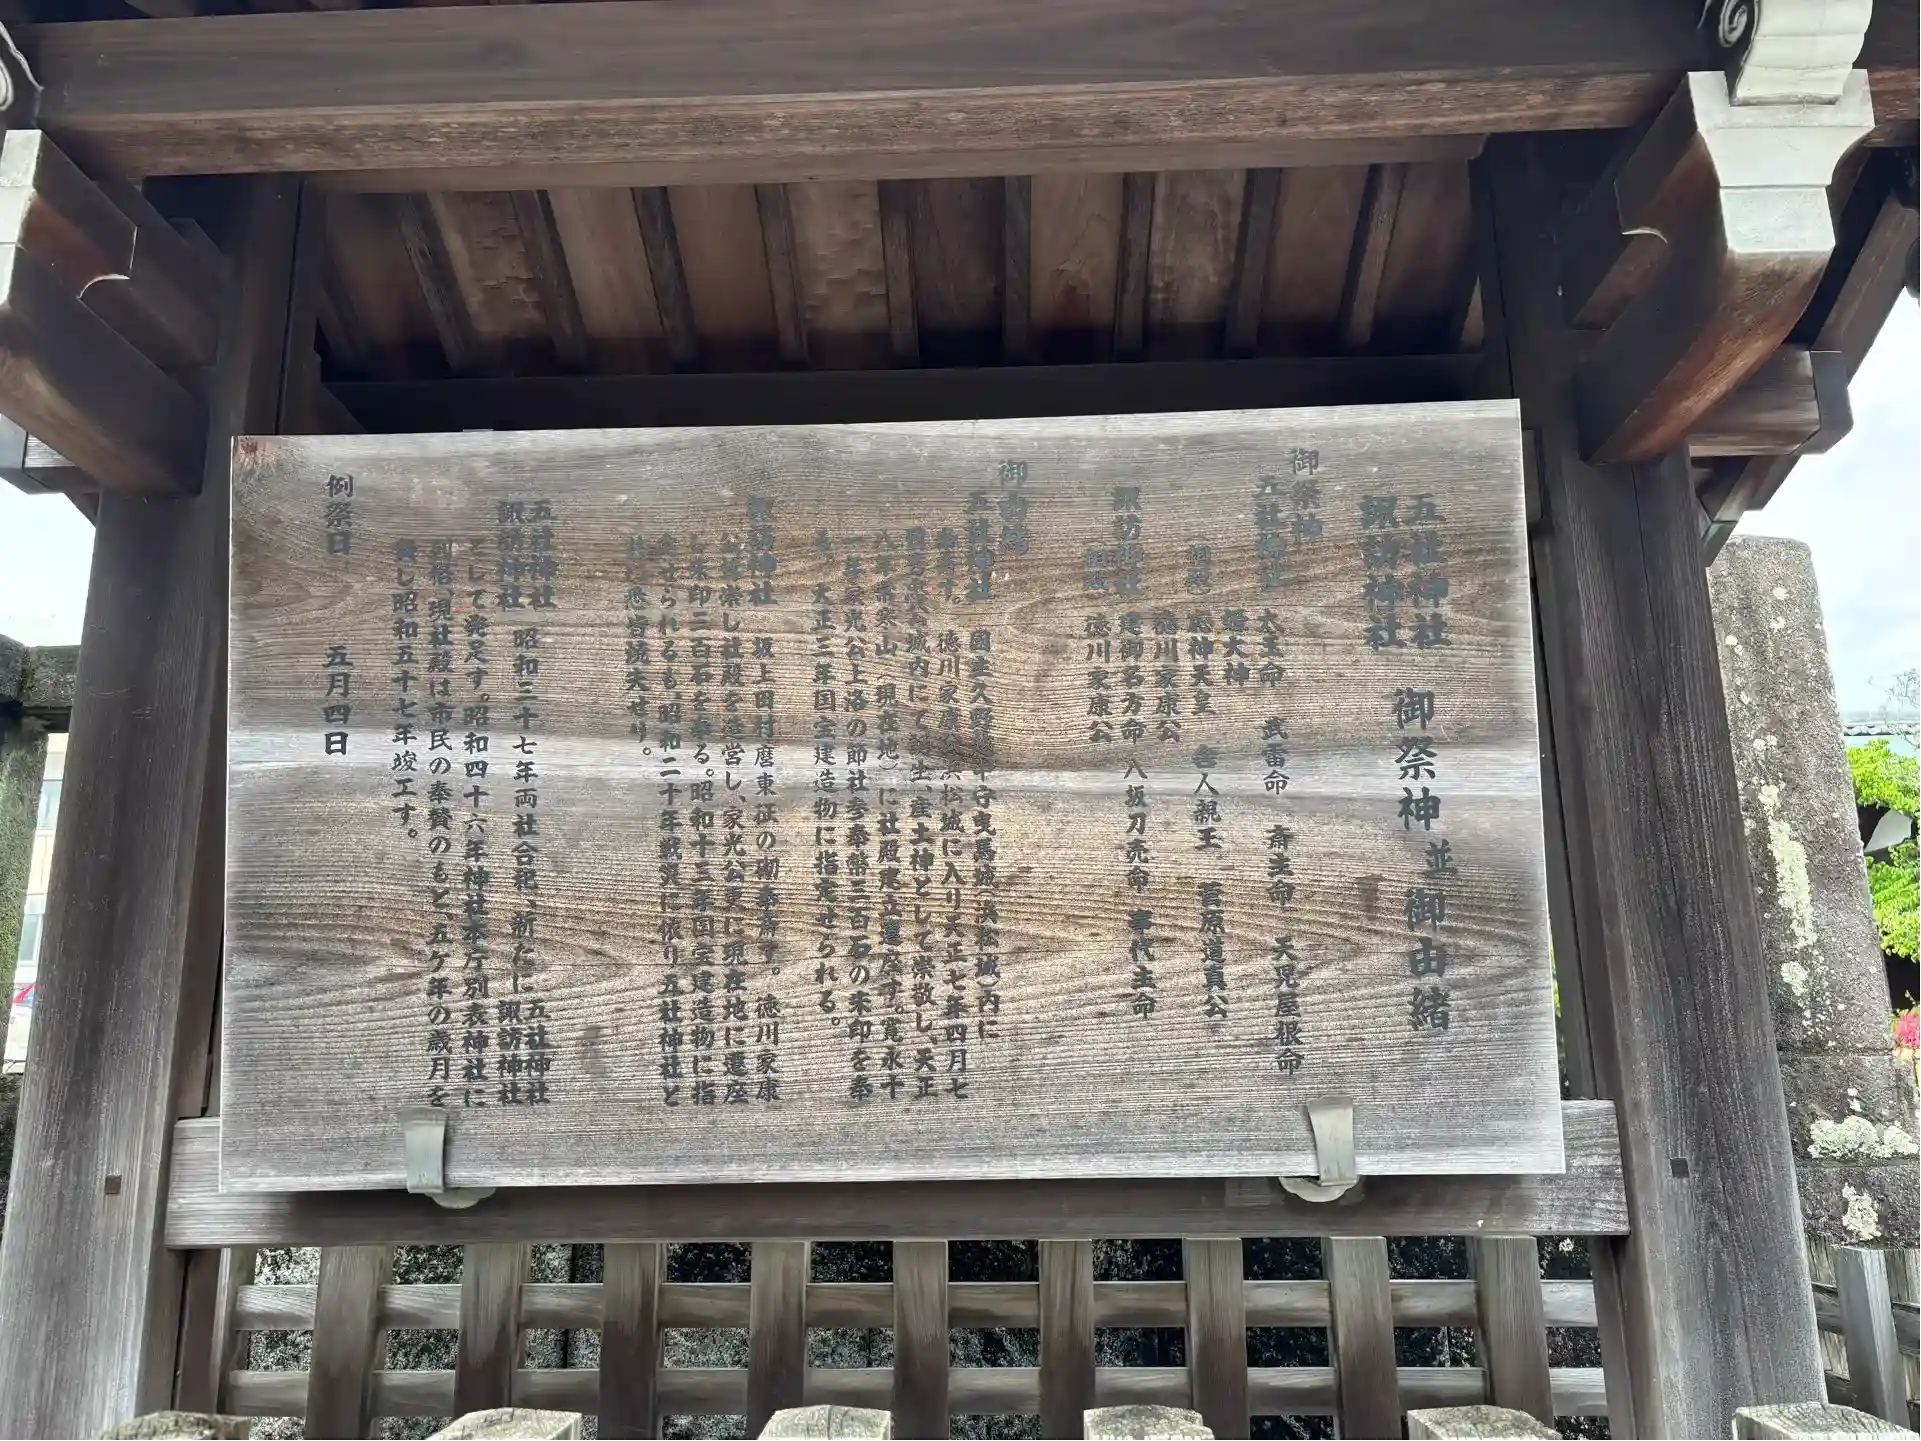 五社神社
諏訪神社
御祭神並御由緒
御祭神
五社神社 太玉命 武雷命 斎主命 天児屋根命
姫大神
相殿 応神天皇 舎人親王 菅原道真公
徳川家康公
諏訪神社 建御名方命 八坂刀売命 事代主命
相殿 徳川家康公
御由緒
五社神社 国主久野越中守曳馬城(浜松城)内に
す。徳川家康公浜松城に入り天正七年四月七
日秀忠公城内にて誕生、産土神として崇敬し、天正
八年常寒山(現在地)に社殿建立遷座す。寛永十
一年家光公上洛の節社参奉幣三百石の朱印を奉
る。大正三年国宝建造物に指定せられる。
諏訪神社 坂上田村麿東征の砌奉斎す。徳川家康
公崇し社殿を造営し、家光公更に現在地に遷座
し朱印三百石を奉る。昭和十三年国宝建造物に指
定せられるも、昭和二十年戦災に依り五社神社と
共に悉皆焼失せり。
五社神社
諏訪神社
昭和三十七年両社合祀、新たに
五社神社
諏訪神社
として発足す。昭和四十六年神社本庁別表神社に
列格、現社殿は市民の奉賛のもと、五ケ年の歳月を
費し昭和五十七年竣工す。
例祭日 五月四日